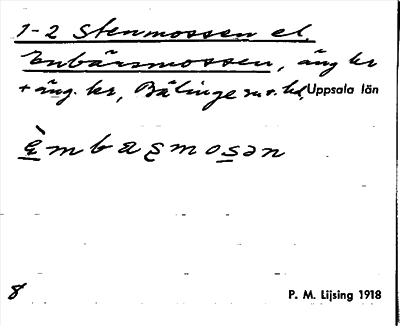 1-2 Stenmossen el.
Enbärsmossen, äng kr
+ äng. kr, Bälinge sn o. hd, Uppsala län
èmbasmosən
8
P. M. Lijsing 1918